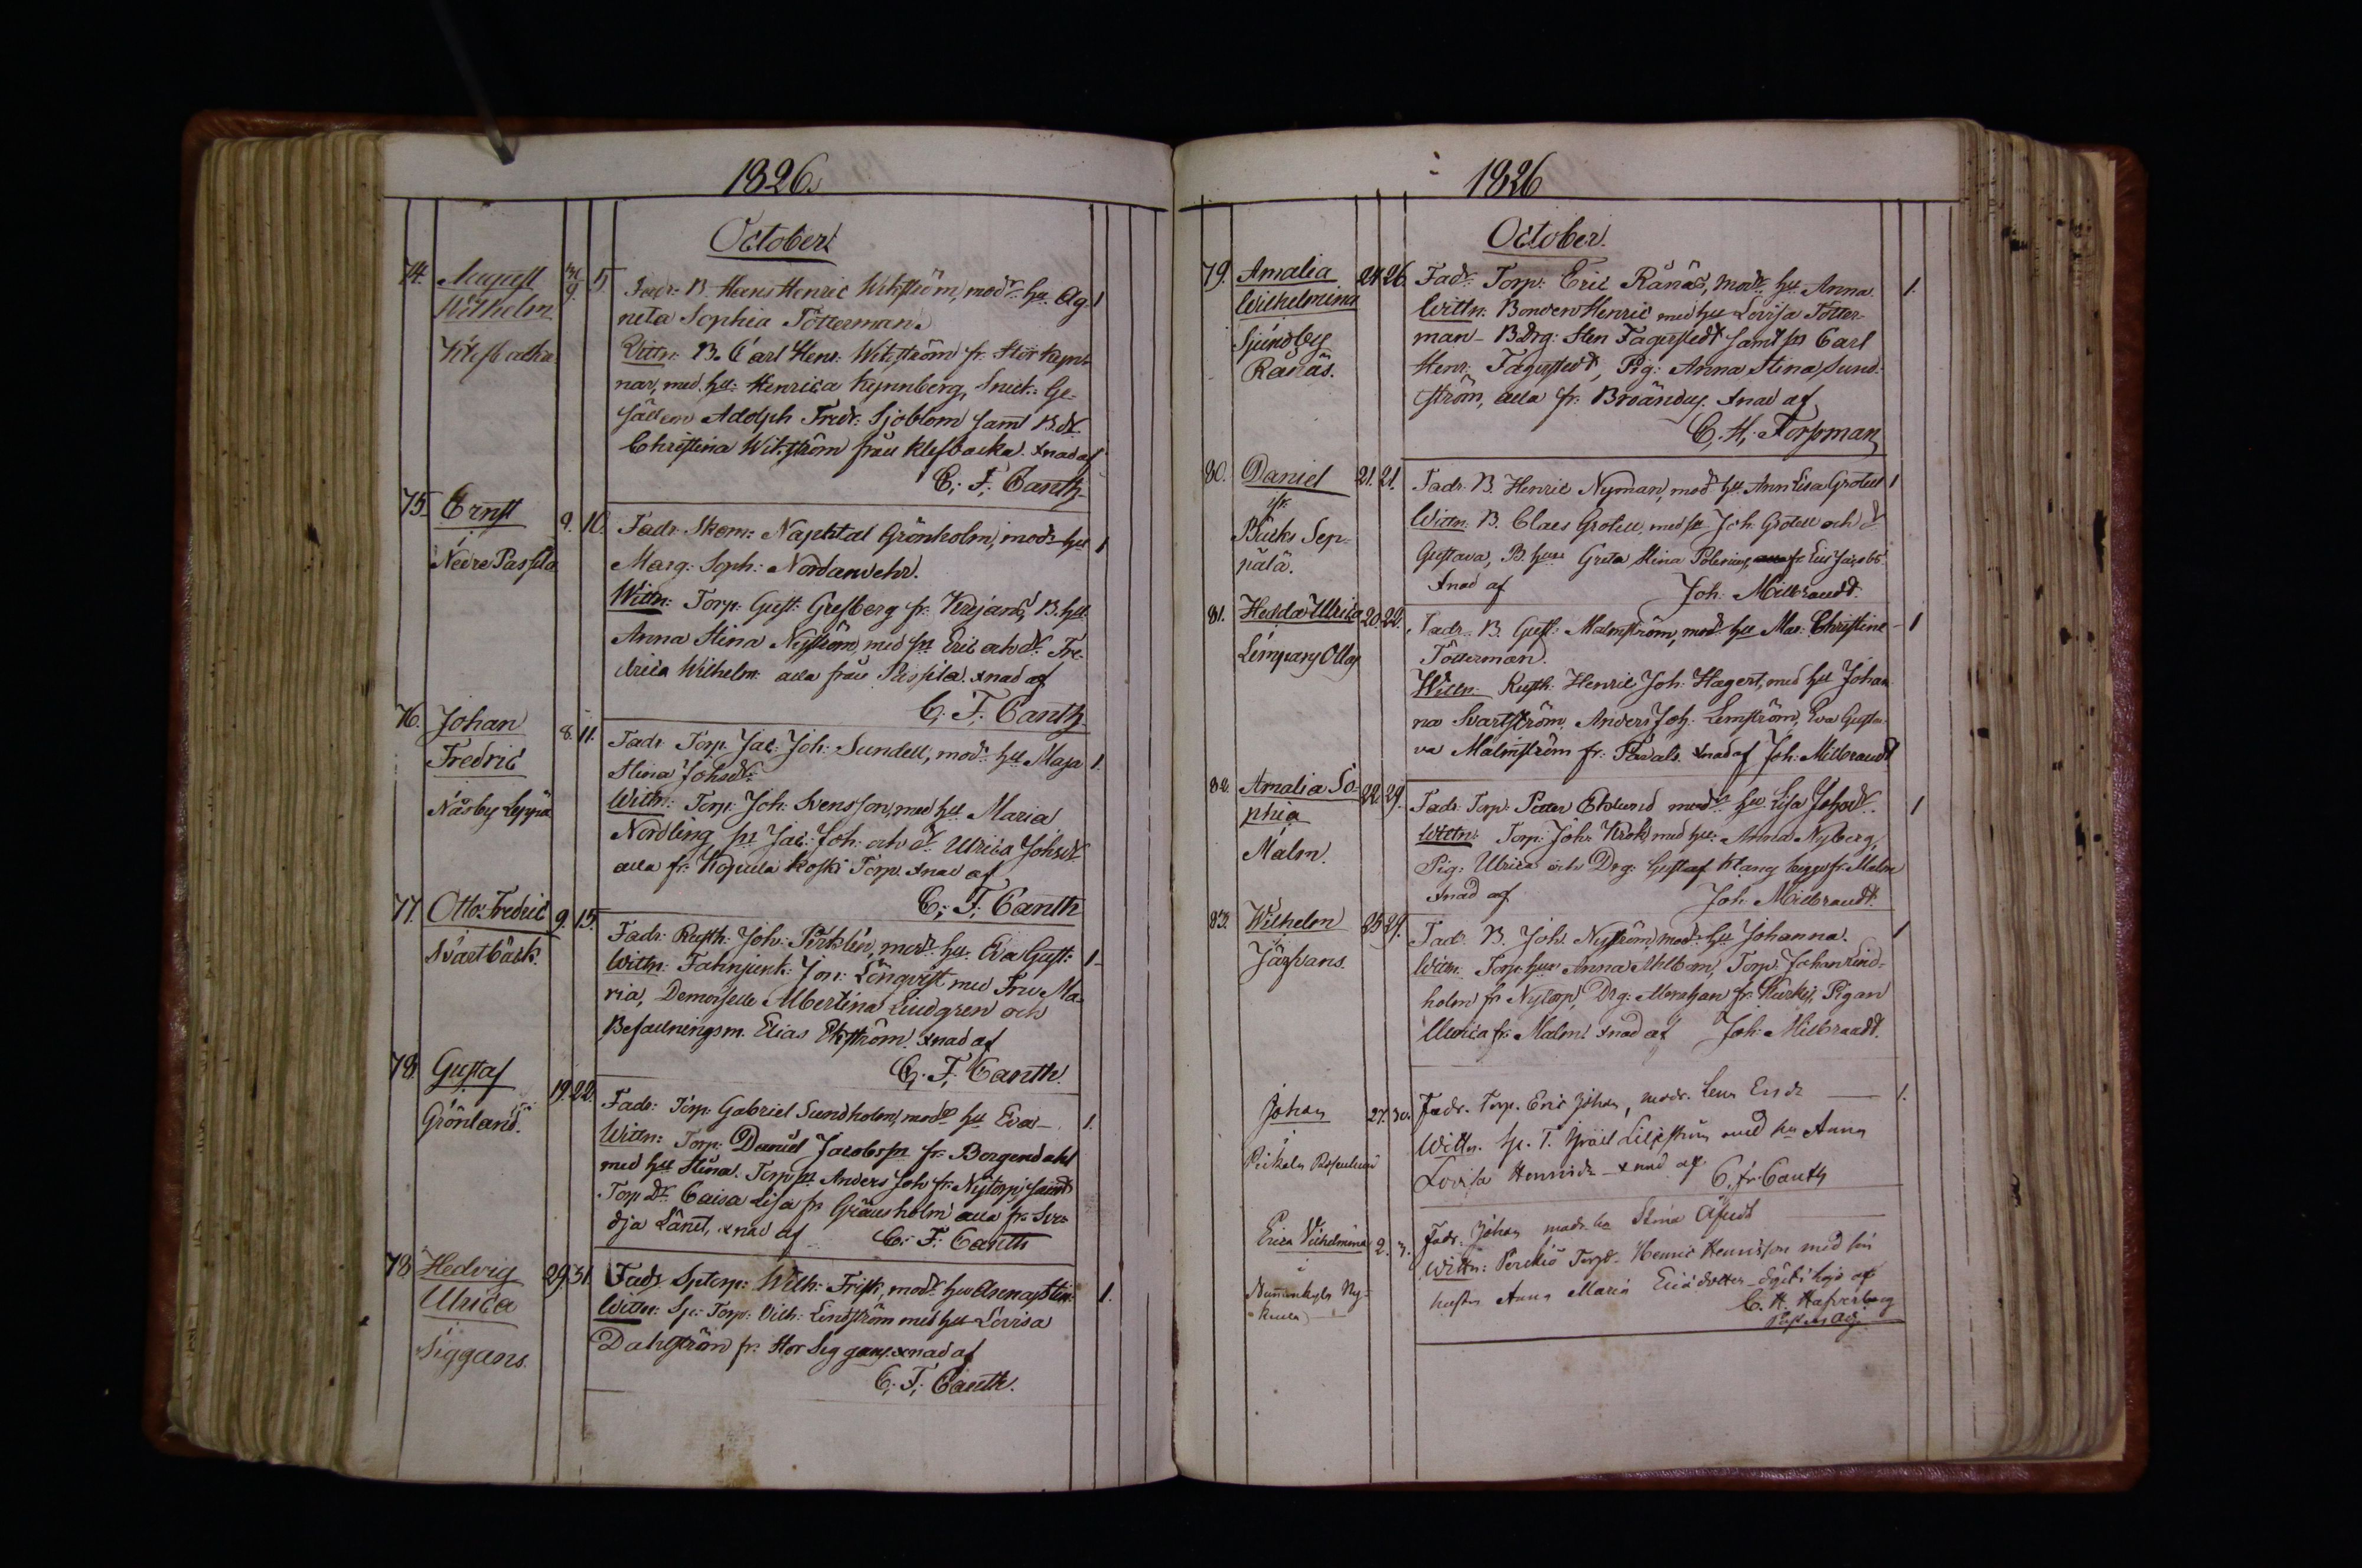 1826.
October
74. August
Wilhelm
Klefbacka
30/9 5.
Fadr: B. Hans Henric Wikström, modr: hu Ag- 1
neta Sophia Tötterman.
Vittn: B. Carl Henr: Wikström fr. Stor Kyn-
nar, med hu: Henrica Kynnberg, Snick: Ge-
sällen Adolph Fredr: Sjöblom samt B.dr
Christina Wikström från Klefbacka. xnad af
C. F. Canth
75. Ernst
Nedre Passila
9. 10. Fadr: Skom: Napthtal Grönholm, modr hu 1
Marg: Soph: Nordanvehr.
Wittn: Torp: Gust: Grefberg fr. B. hu
Anna Stina Nyström, med sn Eric och dr Fre-
drica Wilhelm: alla från Passila. xnad af
C. F. Canth
76. Johan
Fredric
Näsby Leppä
8. 11. Fadr Torp. Jac: Joh: Sundell, modr hu Maja 1.
Stina Johsdr
Wittn: Torp: Joh: Svensson, med hu Maria
Nordling, sn Jac: Joh: och dr Ulrica Johsdr
alla fr. Koskis Torp. xnad af
C. F. Canth
77. Otto Fredric
Svartbäck.
9. 15. Fadr: Rusth: Joh: Pirklén, modr hu Eva Gust: 1
Wittn: Fahnjunk: Jon: Lönqvist med Fru Ma-
ria, Demoiselle Albertina Lindgren och
Befallningsm. Elias Ekström. xnad af
C. F. Canth.
78. Gustaf
Grönland.
19. 22. Fadr: Torp: Gabriel Sundholm, modr hu Eva 1.
Wittn: Torp: Daniel Jacobssn fr. Borgendahl
med hu Stina. Torp sn Anders Joh fr. Nytorp, samt
Torp dr Caisa Lisa fr Gräusholm alla fr. Sve-
dja Länet, xnad af C. F. Canth
78 Hedvig
Ulrica
Siggans.
29. 31. Fadr Sptorp: Wilh: Frisk, modr hu Anna Stin: 1.
Wittn: Sp: Torp: Vilh: Lindström med hu Lovisa
Dahlström fr. Stor Seggans. xnad af
C. F. Canth.
1826
October.
79. Amalia
Wilhelmina
Sjundby
Rånäs.
24 26. Fadr Torp: Eric Rånäs, modr hu Anna 1.
Wittn: Bonden Henric med hu Lovisa Tötter-
man - B Drg: Sten Fagerstedt samt sn Carl
Henr: Fagerstedt, Pig: Anna Stina Sund-
ström, alla fr. Broändy. xnad af
C. H. Forsman
80. Daniel
Bäcks Sep-
pälä.
21. 21. Fadr. B. Henric Nyman, modr hu Ann Lisa Grotell 1
Wittn: B. Claes Grotell, med sn Joh: Grotell och dr
Gustava, B. hu Greta Stina Polenius,
xnad af Joh. Milbrandt.
81. Hedda Ulrica
Lempans Ollas
20. 22. Fadr. B. Gust: Malmström, modr hu Mar: Christine 1
Tötterman.
Wittn: Rusth: Henric Joh: Hagert, med hu Johan-
na Svartström Anders Joh: Lemström, Eva Gusta-
va Malmström fr. Pavals. xnad af Joh: Milbrandt
82. Amalia So-
phia
Malm.
22. 29. Fadr: Torp: Peter Eklund modr hu Lisa Johsdr. 1
Wittn: Torp: Joh: Krok, med hu: Anna Nyberg,
Pig: Ulrica och Drg: Gustaf Klang bägge fr. Malm
xnad af Joh. Milbrandt.
83. Wilhelm
Järfvans.
25 29. Fad: B. Joh. Nyström, modr hu Johanna. 1
Wittn: Torp: hu Anna Ahlbom, Torp: Johan Lind-
holm fr Nytorp, Drg: Abraham fr. Kurki, Pigan
Ulrica fr. Malm. xnad af Joh: Milbrandt.
Johan
Pickala Rosenlund
27. 30. Fadr. Torp. Eric Johan, modr. Lena Ersdr 1.
Wittn. Sp. T. Israel Liljeström med hu Anna
Lovisa Henricsdr xnad af C. Fr. Canth
Erica Vilhelmina
Nummenkylä Ny-
kulla
2. 3. Fadr. Johan modr hu Stina
Wittn: Perkiö Torp: Henric Henricsson med sin
hustru Anna Maria Ericsdotter - döpt i hop af
C. H. Hafverberg
Past. Adj.